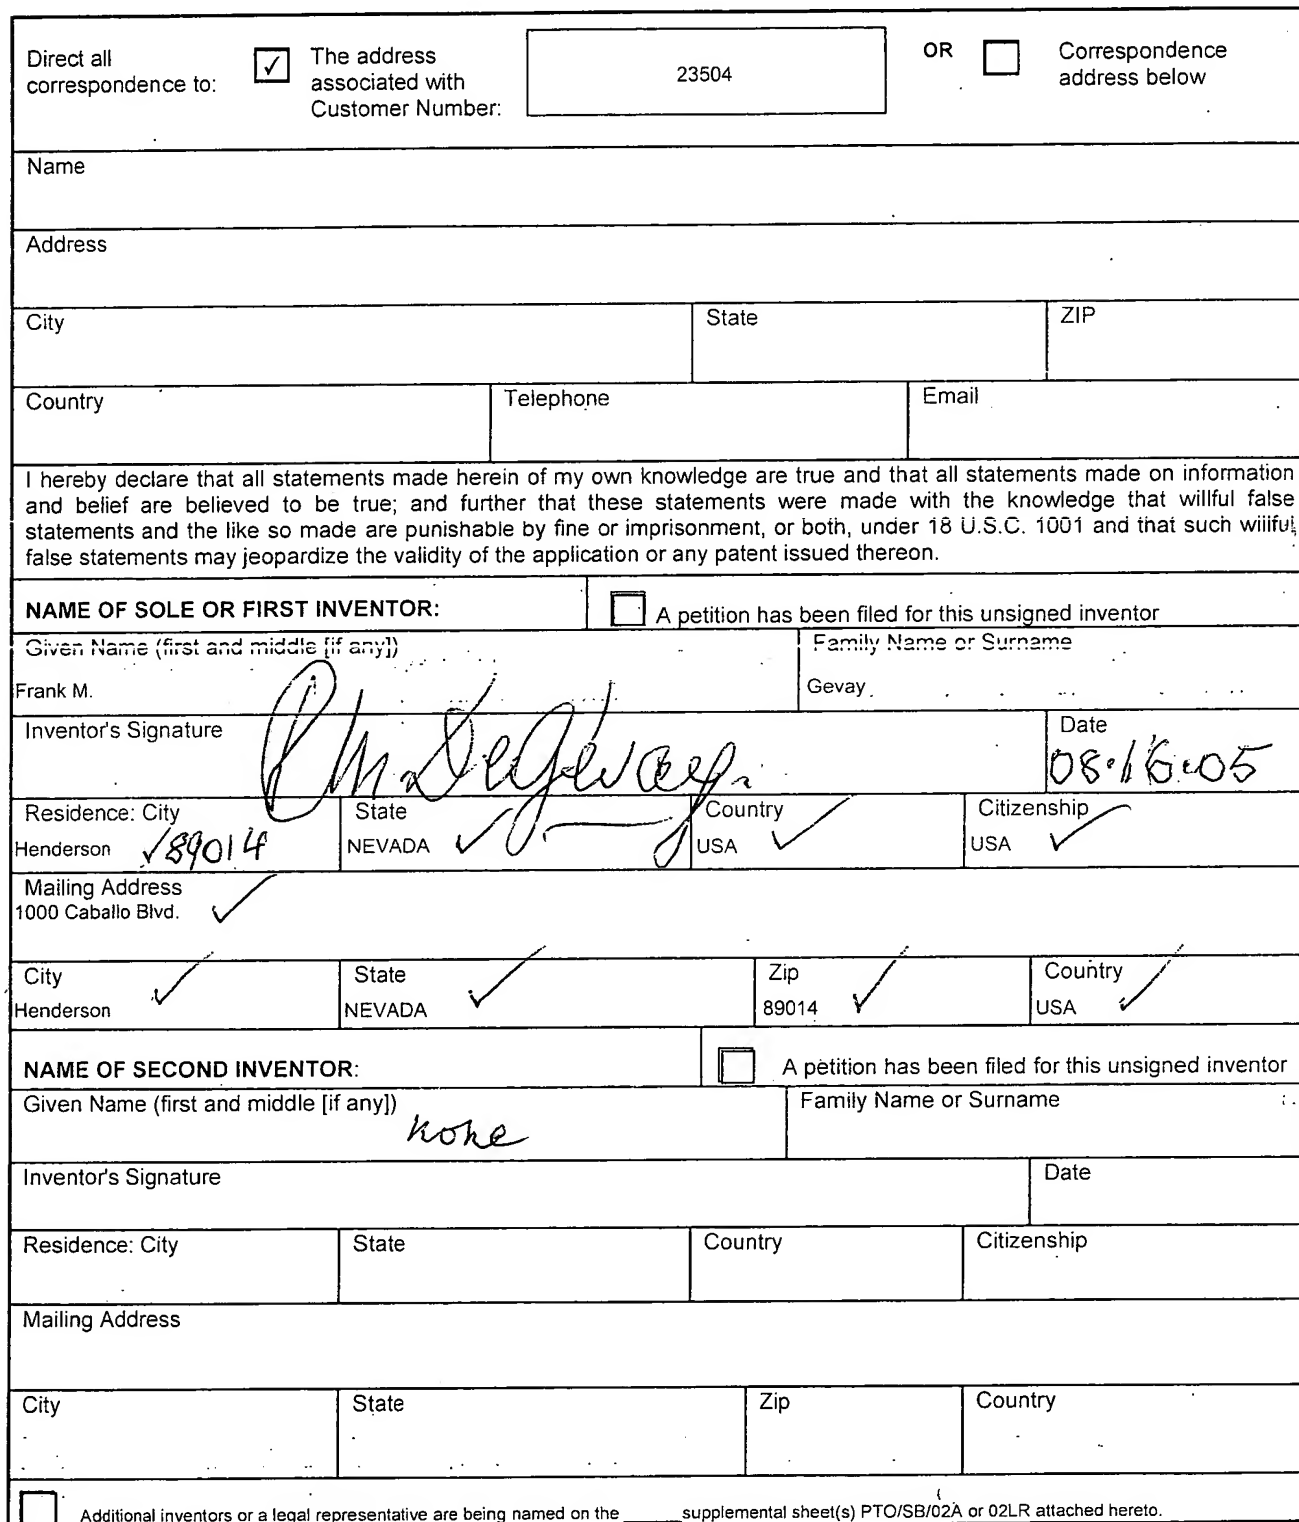 Direct all correspondence to: ✓ The address associated with Customer Number: 23504 OR Correspondence address below
Name
Address
City State ZIP
Country Telephone Email
I hereby declare that all statements made herein of my own knowledge are true and that all statements made on information
and belief are believed to be true; and further that these statements were made with the knowledge that willful false
statements and the like so made are punishable by fine or imprisonment, or both, under 18 U.S.C. 1001 and that such willful
false statements may jeopardize the validity of the application or any patent issued thereon.
NAME OF SOLE OR FIRST INVENTOR: A petition has been filed for this unsigned inventor
Given Name (first and middle [if any]) Family Name or Surname
Frank M. Gevay
Inventor's Signature Date
08.16.05
Residence: City State Country Citizenship
Henderson ✓ 89014 NEVADA ✓ USA ✓ USA ✓
Mailing Address
1000 Caballo Blvd. ✓
City State Zip Country
Henderson ✓ NEVADA ✓ 89014 ✓ USA ✓
NAME OF SECOND INVENTOR: A petition has been filed for this unsigned inventor
Given Name (first and middle [if any]) Family Name or Surname
none
Inventor's Signature Date
Residence: City State Country Citizenship
Mailing Address
City State Zip Country
Additional inventors or a legal representative are being named on the _____ supplemental sheet(s) PTO/SB/02A or 02LR attached hereto.